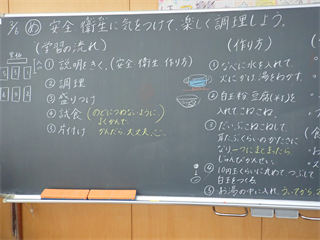 2/6 め 安全 衛生に気をつけて、楽しく調理しよう。
(学習の流れ)
① 説明をきく。(安全 衛生 作り方)
② 調理
③ 盛りつけ
④ 試食 (のどにつめないように
よくかんで
⑤ 片付け かんだら、大丈夫、ごっくん
(作り方)
① なべに水を入れて、
火にかけ湯をわかす。
② 白玉粉 豆腐
入れてこねこね。
③ だいぶこねこねして、
耳たぶくらいのかたさに
なり一つにまとまったら
じゅんびかんせい。
④ 10円玉くらいに丸めて つぶして
白玉をつくる
⑤ お湯の中に入れ、ういてから